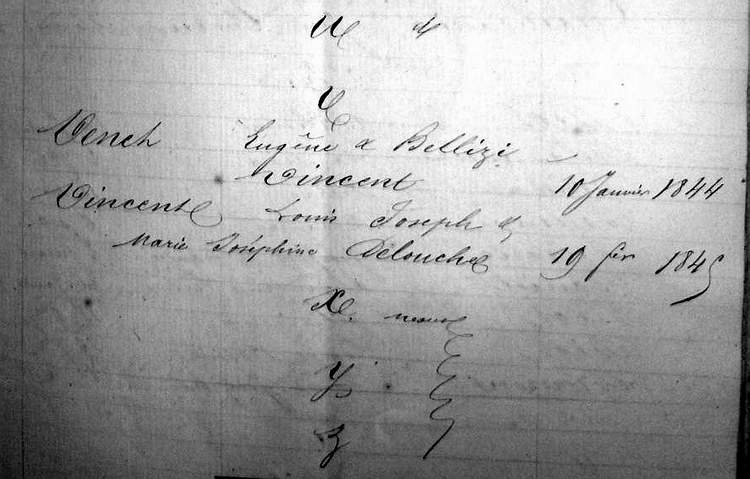 U
V
Vench Eugène & Bellizi
Vincent 10 Janvier 1844
Vincent Louis Joseph &
Marie Joséphine Délouche 19 fév 1845
X.
Y
Z